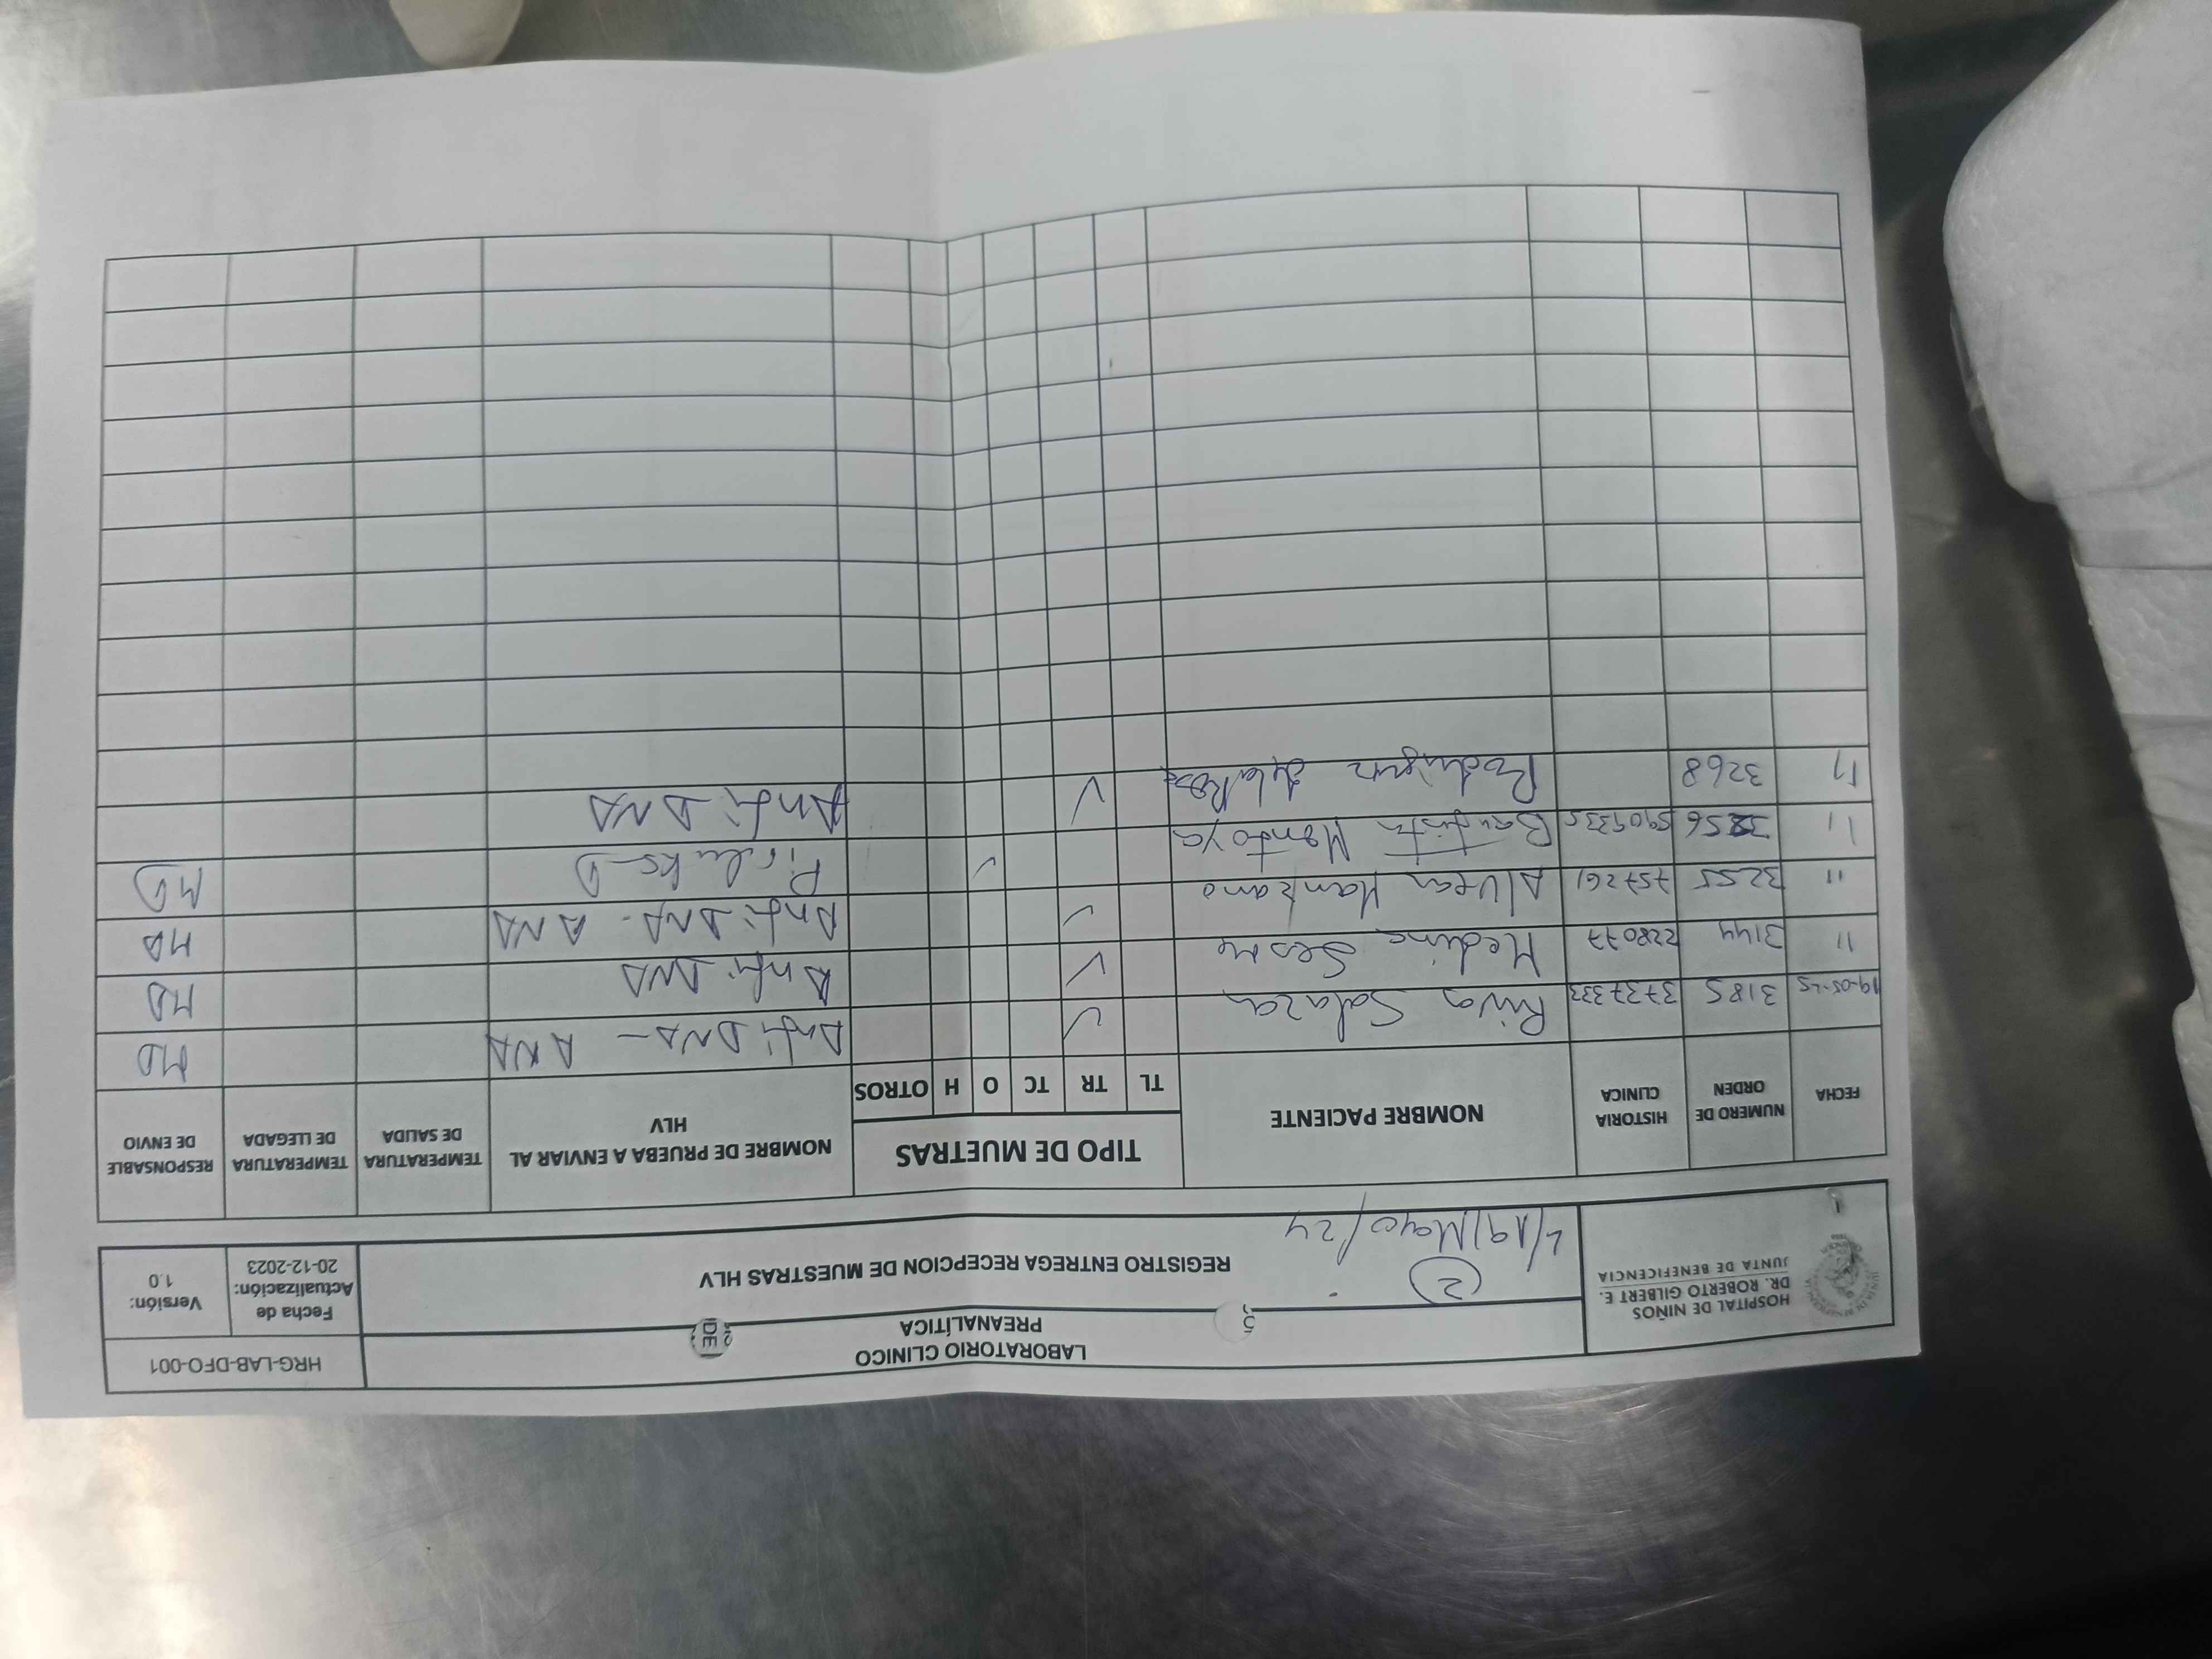 HOSPITAL DE NIÑOS
DR. ROBERTO GILBERT E.
JUNTA DE BENEFICENCIA
LABORATORIO CLINICO
PREANALÍTICA
HRG-LAB-DFO-001
REGISTRO ENTREGA RECEPCION DE MUESTRAS HLV
Fecha de Actualización: 20-12-2023
Versión: 1.0
2
L/19/Mayo/24
FECHA NUMERO DE ORDEN HISTORIA CLINICA NOMBRE PACIENTE TIPO DE MUETRAS NOMBRE DE PRUEBA A ENVIAR AL HLV TEMPERATURA DE SALIDA TEMPERATURA DE LLEGADA RESPONSABLE DE ENVIO
TL TR TC O H OTROS
19-05-25 3185 3737333 Rivas Salazar Anti DNA - ANA MD
11 3144 228077 Medina Anti DNA MD
11 3255 757261 Alvear Manzano Anti DNA - ANA MD
11 Bautista Montoya MD
11 3268 Anti DNA